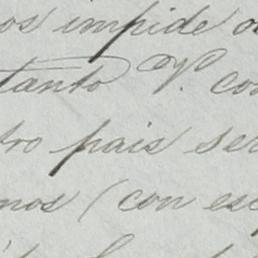 os impide
tanto V. con
tro pais ser
mos (con es